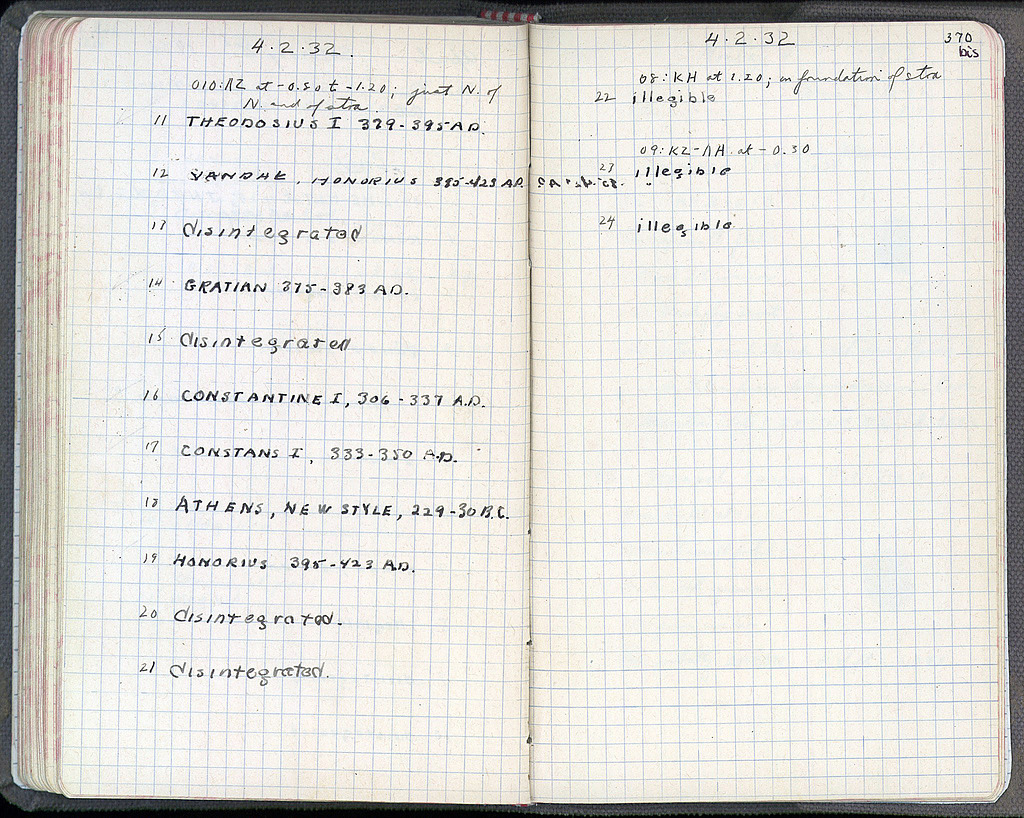 4.2.32.
010:ΛZ at -0.50 to -1.20; just N. of
N. end of stoa
11 THEODOSIUS I 379-395 A.D.
12 VANDAL, HONORIUS 395-423 A.D.
13 disintegrated
14 GRATIAN 375-383 A.D.
15 disintegrated
16 CONSTANTINE I, 306-337 A.D.
17 CONSTANS I, 333-350 A.D.
18 ATHENS, NEW STYLE, 229-30 B.C.
19 HONORIUS 395-423 A.D.
20 disintegrated.
21 disintegrated.
4.2.32
370
bis
08:KH at 1.20; on foundation of stoa
22 illegible
09:KZ-ΛH at -0.30
23 illegible
24 illegible